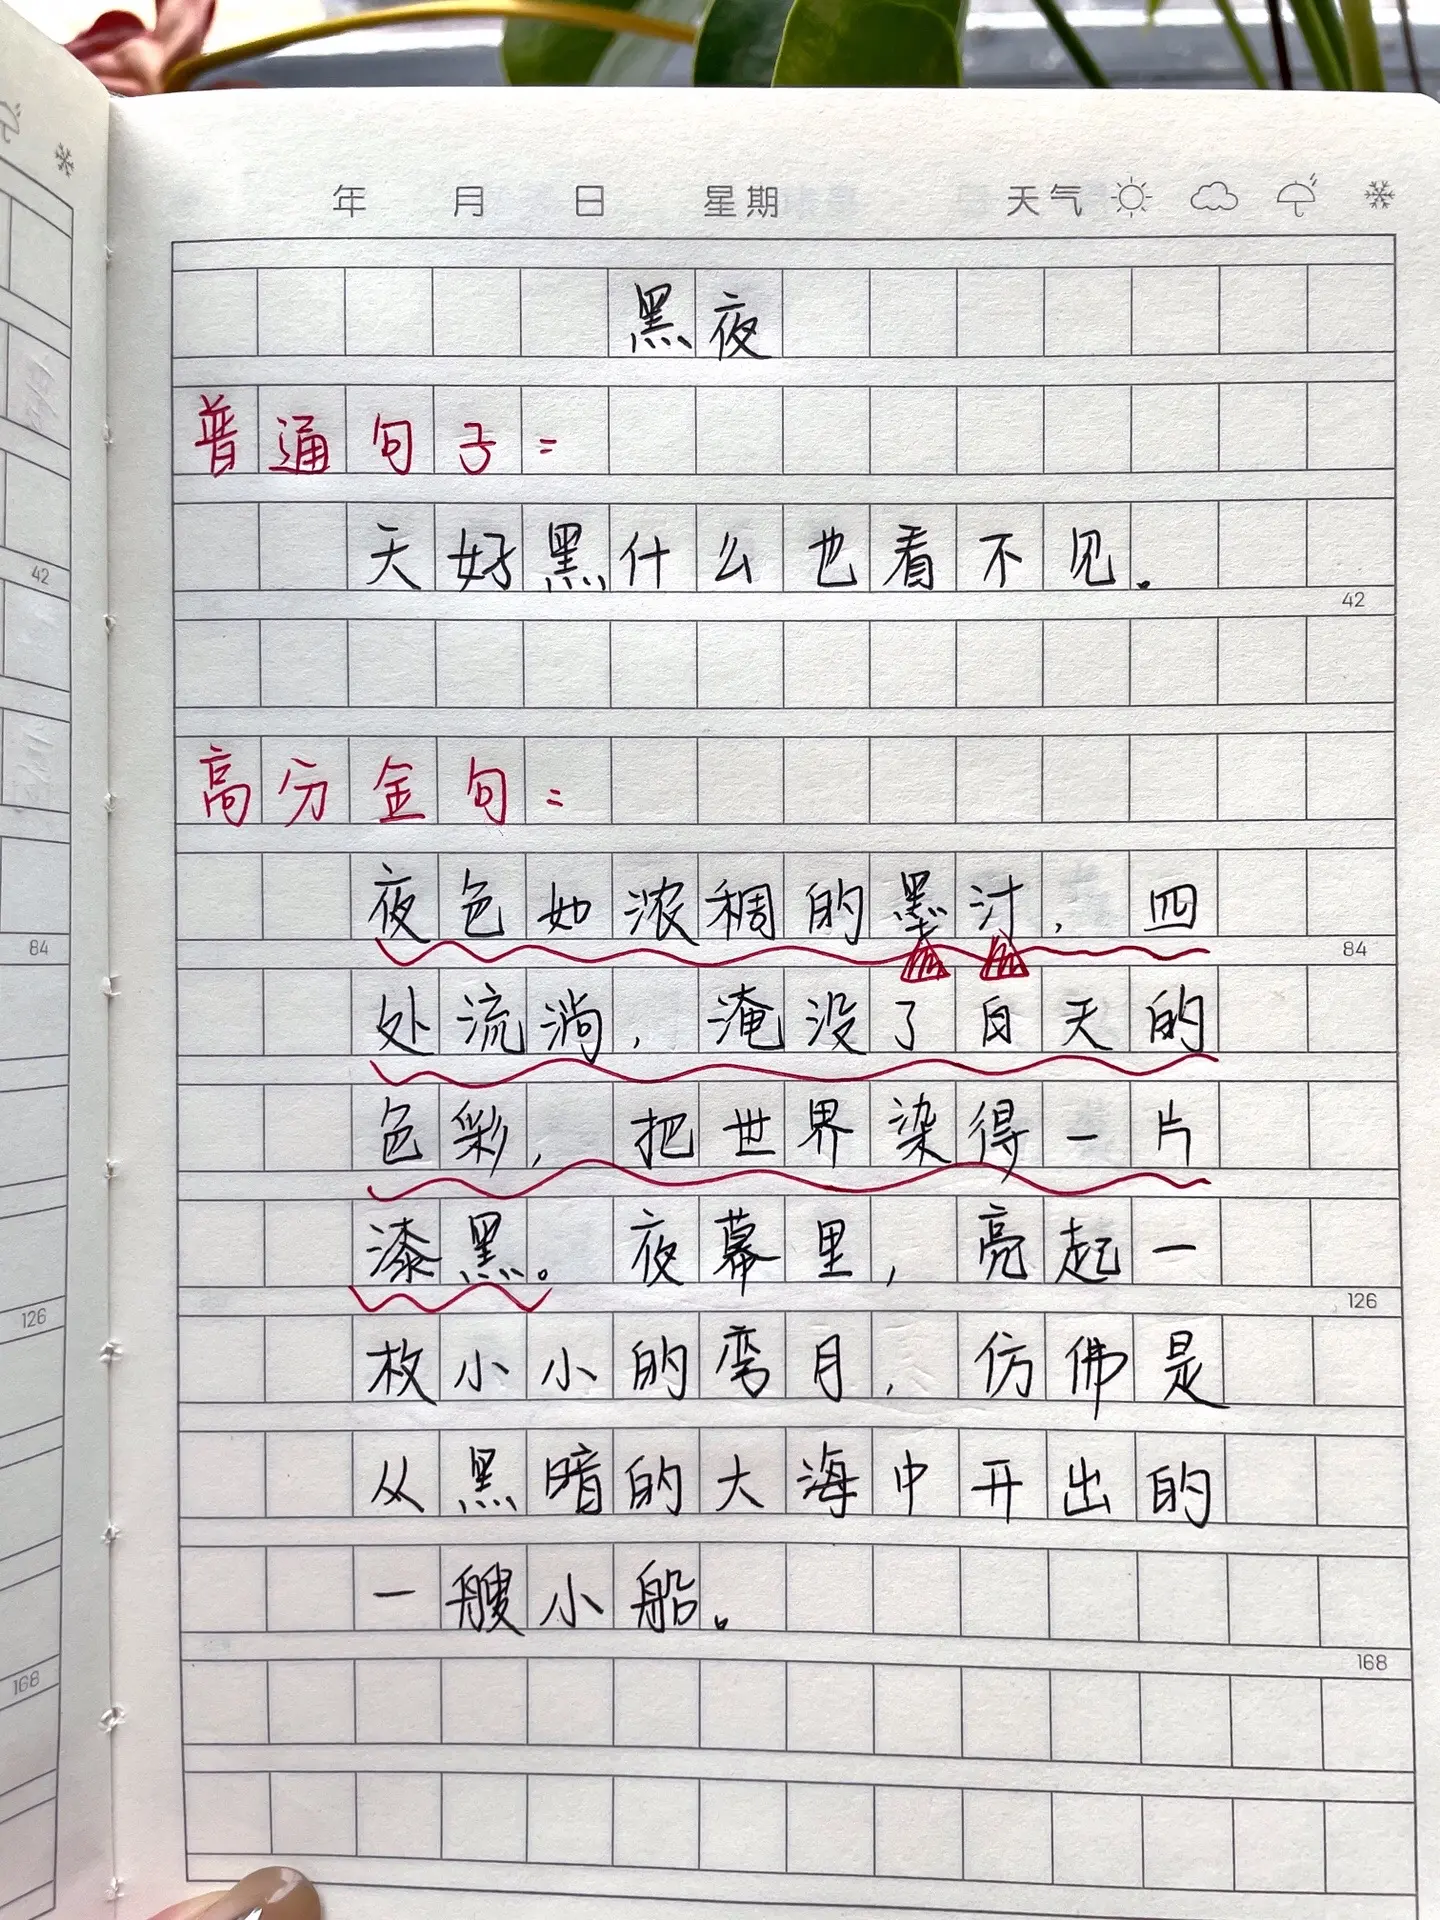 年 月 日 星期 天气
黑夜
普通句子：
天好黑什么也看不见。
42
高分金句：
夜色如浓稠的墨汁，四
84
处流淌，淹没了白天的
色彩，把世界染得一片
漆黑。夜幕里，亮起一
126
枚小小的弯月，仿佛是
从黑暗的大海中开出的
一艘小船。
168
42
84
126
168